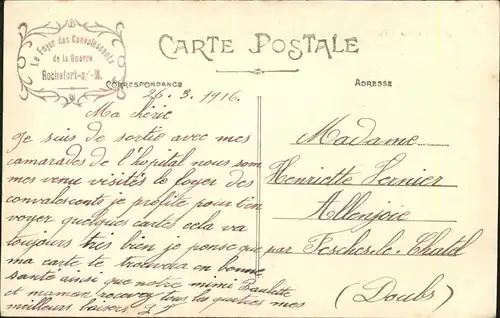 Le Foyer des Convalescents
de la Guerre
Rochefort-s/-M.
CARTE POSTALE
CORRESPONDANCE
ADRESSE
26. 3. 1916.
Ma chérie
Je suis de sortie avec mes
camarades de l'hopital nous som
mes venu visités le foyer des
convalescents je profite pour t'en
voyer quelques cartes cela va
toujours tres bien je pense que
ma carte te trouvera en bonne
santé ainsi que notre mimi Paulette
et maman recevez tous les quatres mes
meilleurs baisers
Madame
Henriette Vernier
Allenjoie
par Fesches-le-Chatel
(Doubs)